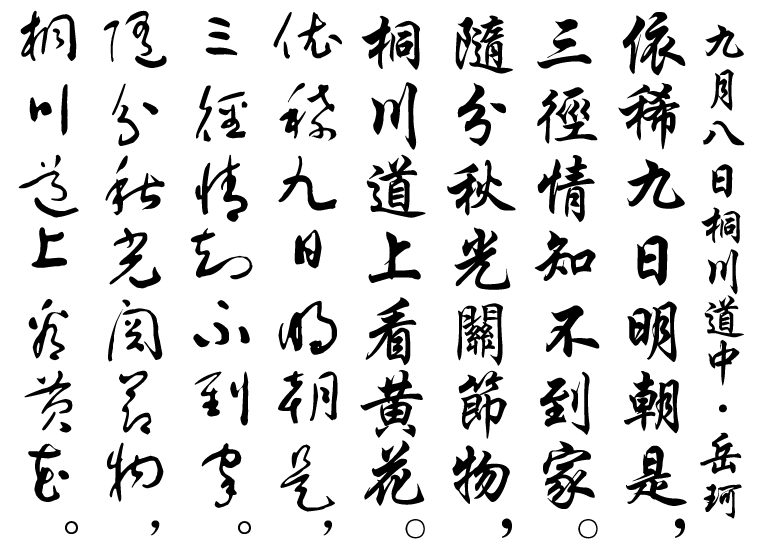 九月八日桐川道中·岳珂
依稀九日明朝是，
三徑情知不到家。
隨分秋光關節物，
桐川道上看黃花。
依稀九日明朝是，
三徑情知不到家。
隨分秋光關節物，
桐川道上看黃花。